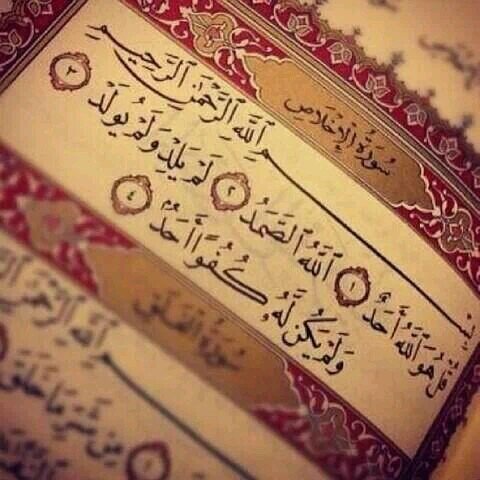 سُورَةُ الْإِخْلَاصِ
بِسْمِ اللَّهِ الرَّحْمَٰنِ الرَّحِيمِ
قُلْ هُوَ اللَّهُ أَحَدٌ ١ اللَّهُ الصَّمَدُ ٢ لَمْ يَلِدْ وَلَمْ يُولَدْ ٣
وَلَمْ يَكُن لَّهُ كُفُوًا أَحَدٌ ٤
سُورَةُ الْفَلَقِ
اللَّهِ الرَّحْمَٰنِ
مِن شَرِّ مَا خَلَقَ